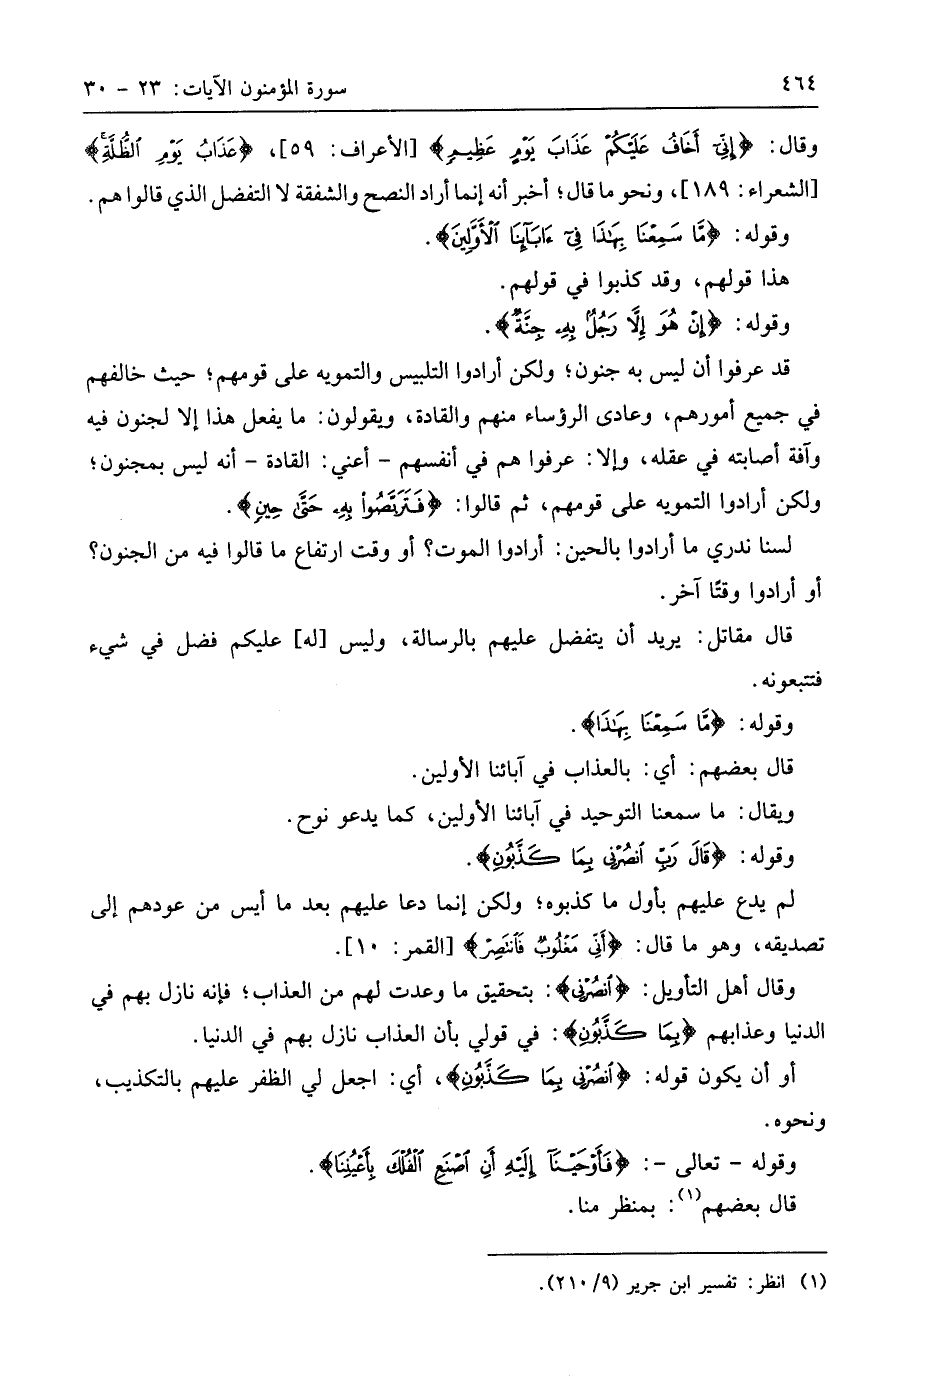 ٤٦٤ سورة المؤمنون الآيات: ٢٣ - ٣٠
وقال: ﴿إِنِّيٓ أَخَافُ عَلَيۡكُمۡ عَذَابَ يَوۡمٍ عَظِيمٖ﴾ [الأعراف: ٥٩]، ﴿عَذَابُ يَوۡمِ ٱلظُّلَّةِۚ﴾
[الشعراء: ١٨٩]، ونحو ما قال؛ أخبر أنه إنما أراد النصح والشفقة لا التفضل الذي قالوا هم.
وقوله: ﴿مَّا سَمِعۡنَا بِهَٰذَا فِيٓ ءَابَآئِنَا ٱلۡأَوَّلِينَ﴾.
هذا قولهم، وقد كذبوا في قولهم.
وقوله: ﴿إِنۡ هُوَ إِلَّا رَجُلُۢ بِهِۦ جِنَّةٞ﴾.
قد عرفوا أن ليس به جنون؛ ولكن أرادوا التلبيس والتمويه على قومهم؛ حيث خالفهم
في جميع أمورهم، وعادى الرؤساء منهم والقادة، ويقولون: ما يفعل هذا إلا لجنون فيه
وآفة أصابته في عقله، وإلا: عرفوا هم في أنفسهم - أعني: القادة - أنه ليس بمجنون؛
ولكن أرادوا التمويه على قومهم، ثم قالوا: ﴿فَتَرَبَّصُواْ بِهِۦ حَتَّىٰ حِينٖ﴾.
لسنا ندري ما أرادوا بالحين: أرادوا الموت؟ أو وقت ارتفاع ما قالوا فيه من الجنون؟
أو أرادوا وقتًا آخر.
قال مقاتل: يريد أن يتفضل عليهم بالرسالة، وليس [له] عليكم فضل في شيء
فتتبعونه.
وقوله: ﴿مَّا سَمِعۡنَا بِهَٰذَا﴾.
قال بعضهم: أي: بالعذاب في آبائنا الأولين.
ويقال: ما سمعنا التوحيد في آبائنا الأولين، كما يدعو نوح.
وقوله: ﴿قَالَ رَبِّ ٱنصُرۡنِي بِمَا كَذَّبُونِ﴾.
لم يدع عليهم بأول ما كذبوه؛ ولكن إنما دعا عليهم بعد ما أيس من عودهم إلى
تصديقه، وهو ما قال: ﴿أَنِّي مَغۡلُوبٞ فَٱنتَصِرۡ﴾ [القمر: ١٠].
وقال أهل التأويل: ﴿ٱنصُرۡنِي﴾: بتحقيق ما وعدت لهم من العذاب؛ فإنه نازل بهم في
الدنيا وعذابهم ﴿بِمَا كَذَّبُونِ﴾: في قولي بأن العذاب نازل بهم في الدنيا.
أو أن يكون قوله: ﴿ٱنصُرۡنِي بِمَا كَذَّبُونِ﴾، أي: اجعل لي الظفر عليهم بالتكذيب،
ونحوه.
وقوله - تعالى -: ﴿فَأَوۡحَيۡنَآ إِلَيۡهِ أَنِ ٱصۡنَعِ ٱلۡفُلۡكَ بِأَعۡيُنِنَا﴾.
قال بعضهم(١): بمنظر منا.
(١) انظر: تفسير ابن جرير (٢١٠/٩).